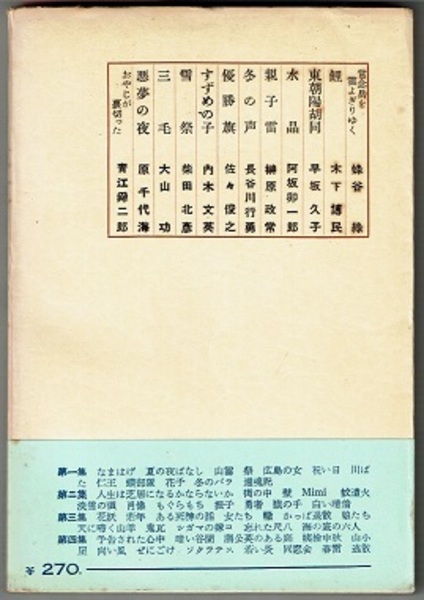 雲よぎりゆく 蜂谷 緑
鯉 木下 博民
東朝陽胡同 早坂 久子
水晶 阿坂卯一郎
親子雷 榊原 政常
冬の声 長谷川行勇
優勝旗 佐々 俊之
すずめの子 内木 文英
雪祭 柴田 北彦
三毛 大山 功
悪夢の夜 原 千代海
おやじが
裏切った 青江舜二郎
第一集 なまはげ 夏の夜ばなし 山霊 祭 広島の女 祝い日 川ば
た 仁王 花子 冬のバラ
第二集 人生は芝居になるかならないか 街の中 壁 Mimi 蚊遣火
浅雪の頃 肖像 もぐらもち 振子 勇者 猿の手 白い墻
第三集 花妖 老年 ある死神の話 女たち かっぱ 娘たち
天に嘶く山羊 鬼瓦 シガマの嫁コ 忘れた尺八 海の底の六人
第四集 予告された心中 暗い谷間 蒲公英のある庭 秋 山小
屋 向い風 ぜにごけ ソクラテス 若い炎 同窓会 春雷
¥ 270.